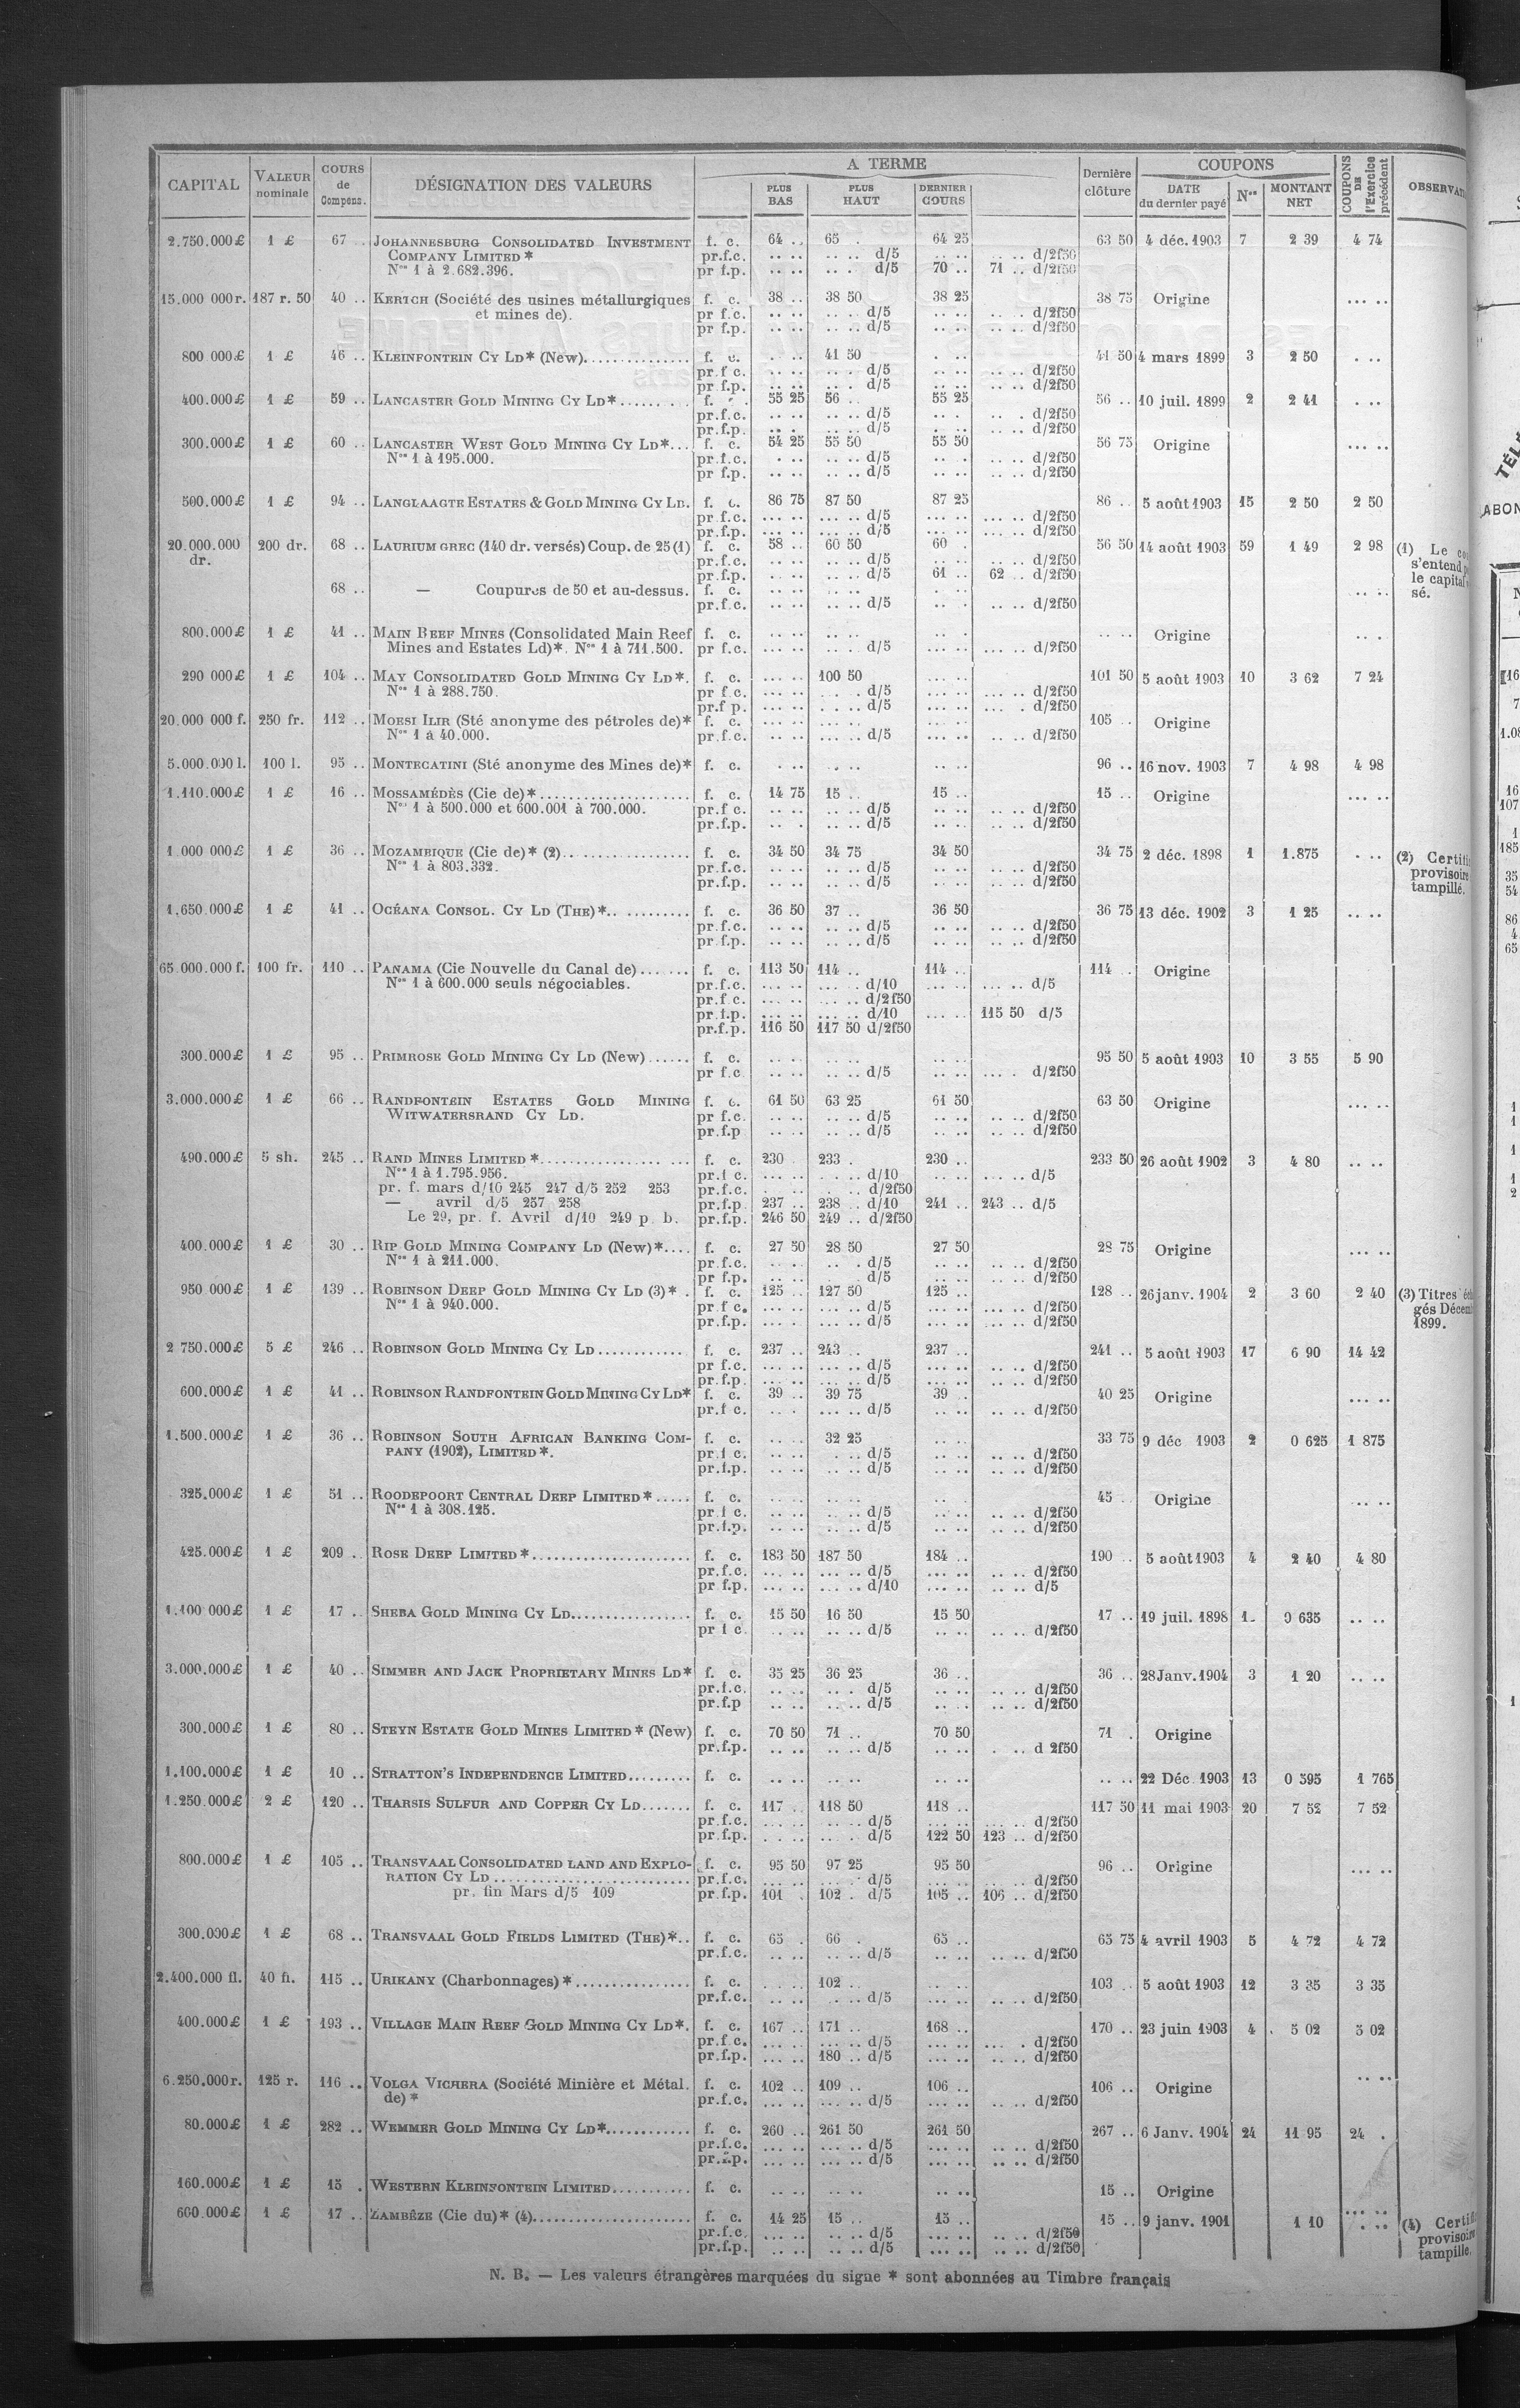 CAPITAL VALEUR nominale COURS de Compens. DÉSIGNATION DES VALEURS A TERME PLUS BAS PLUS HAUT DERNIER COURS Dernière clôture COUPONS DATE du dernier payé Nos MONTANT NET COUPONS DE l'Exercice précédent
2.750.000£ 1 £ 67 .. JOHANNESBURG CONSOLIDATED INVESTMENT f. c. 64 .. 65 . 64 25 63 50 4 déc. 1903 7 2 39 4 74
COMPANY LIMITED * pr.f.c. .. .. .. .. d/5 .. .. .. .. d/2f50
Nos 1 à 2.682.396. pr f.p. .. .. .. . d/5 70 .. 71 .. d/2f50
15.000 000r. 187 r. 50 40 .. KERTCH (Société des usines métallurgiques f. c. 38 .. 38 50 38 25 38 75 Origine ... ..
et mines de). pr f.c. .. .. .. .. d/5 .. .. .. . d/2f50
pr f.p. .. .. .. .. d/5 .. .. .. .. d/2f50
800 000£ 1 £ 46 .. KLEINFONTEIN CY LD* (New)............... f. c. . .. 41 50 . .. 41 50 4 mars 1899 3 2 50 . ..
pr.f c. .. .. .. .. d/5 .. .. .. .. d/2f50
pr f.p. .. .. .. . d/5 .. .. .. .. d/2f50
400.000£ 1 £ 59 .. LANCASTER GOLD MINING CY LD*........ . f. . . 55 25 56 .. 55 25 56 .. 10 juil. 1899 2 2 41 . ..
pr.f.c. .. .. .. .. d/5 .. . .. . d/2f50
pr.f.p. .. . .. .. d/5 . .. .. .. d/2f50
300.000£ 1 £ 60 .. LANCASTER WEST GOLD MINING CY LD*... f. c. 54 25 55 50 55 50 56 75 Origine ... ..
Nos 1 à 195.000. pr.f.c. . .. .. .. d/5 .. . .. .. d/2f50
pr f.p. .. .. .. .. d/5 .. .. .. .. d/2f50
500.000£ 1 £ 94 .. LANGLAAGTE ESTATES & GOLD MINING CY LD. f. c. 86 75 87 50 87 25 86 .. 5 août 1903 15 2 50 2 50
pr f.c. ... .. ... .. d/5 ... .. ... .. d/2f50
pr.f.p. ... .. ... .. d/5 ... .. ... .. d/2f50
20.000.000 200 dr. 68 .. LAURIUM GREC (140 dr. versés) Coup. de 25 (1) f. c. 58 .. 60 50 60 . 56 50 14 août 1903 59 1 49 2 98 (1) Le
dr. pr.f.c. .. .. .. .. d/5 .. .. .. .. d/2f50 s'entend
pr.f.p. . .. .. .. d/5 61 .. 62 .. d/2f50 le capital
68 .. — Coupures de 50 et au-dessus. f. c. .. .. .. .. .. . .. .. sé.
pr.f.c. .. .. .. .. d/5 .. . .. .. d/2f50
800.000£ 1 £ 41 .. MAIN REEF MINES (Consolidated Main Reef f. c. .. .. .. .. .. . .. .. Origine .. .
Mines and Estates Ld)*. Nos 1 à 711.500. pr f.c. ... .. .. .. d/5 ... .. ... .. d/2f50
290 000£ 1 £ 104 .. MAY CONSOLIDATED GOLD MINING CY LD*. f. c. ... .. 100 50 ... .. 101 50 5 août 1903 10 3 62 7 24
Nos 1 à 288.750. pr f.c. ... .. . . . d/5 ... .. ... .. d/2f50
pr.f p. ... .. .. .. d/5 ... .. ... . d/2f50
20.000 000 f. 250 fr. 112 .. MOESI ILIR (Sté anonyme des pétroles de)* f. c. ... .. ... .. ... .. 105 .. Origine
Nos 1 à 40.000. pr.f.c. .. .. ... .. d/5 ... .. .. .. d/2f50
5.000.000 l. 100 l. 95 .. MONTECATINI (Sté anonyme des Mines de)* f. c. . .. . .. .. .. 96 .. 16 nov. 1903 7 4 98 4 98
1.110.000£ 1 £ 16 .. MOSSAMÉDÈS (Cie de)*..................... f. c. 14 75 15 .. 15 .. 15 .. Origine ... ..
Nos 1 à 500.000 et 600.001 à 700.000. pr.f c. .. .. .. .. d/5 .. .. .. .. d/2f50
pr.f.p. .. . .. .. d/5 .. .. .. .. d/2f50
1 000 000£ 1 £ 36 .. MOZAMBIQUE (Cie de)* (2)................. f. c. 34 50 34 75 34 50 34 75 2 déc. 1898 1 1.875 . .. (2)
Nos 1 à 803.332. pr.f.c. .. .. .. .. d/5 .. .. .. .. d/2f50 provisoire
pr.f.p. .. .. .. .. d/5 .. .. .. .. d/2f50 tampillé.
1.650.000£ 1 £ 41 .. OCÉANA CONSOL. CY LD (THE)*.. .......... f. c. 36 50 37 .. 36 50 36 75 13 déc. 1902 3 1 25 .. ..
pr.f.c. .. .. .. .. d/5 .. .. .. .. d/2f50
pr f.p. .. .. .. .. d/5 .. .. .. .. d/2f50
65.000.000 f. 100 fr. 110 .. PANAMA (Cie Nouvelle du Canal de)....... f. c. 113 50 114 .. 114 .. 114 . Origine
Nos 1 à 600.000 seuls négociables. pr.f.c. ... .. ... . d/10 ... .. ... .. d/5
pr.f c. ... .. ... .. d/2f50
pr f.p. ... .. ... .. d/10 ... .. 115 50 d/5
pr.f.p. 116 50 117 50 d/2f50
300.000£ 1 £ 95 .. PRIMROSE GOLD MINING CY LD (New)...... f. c. .. .. .. .. .. .. 95 50 5 août 1903 10 3 55 5 90
pr f.c .. .. .. .. d/5 .. .. ... . d/2f50
3.000.000£ 1 £ 66 .. RANDFONTEIN ESTATES GOLD MINING f. c. 61 50 63 25 61 50 63 50 Origine ... ..
WITWATERSRAND CY LD. pr f.c. .. .. .. .. d/5 .. .. .. .. d/2f50
pr.f.p .. .. .. .. d/5 .. .. .. .. d/2f50
490.000£ 5 sh. 245 .. RAND MINES LIMITED *.................... f. c. 230 . 233 . 230 .. 233 50 26 août 1902 3 4 80 .. ..
Nos 1 à 1.795.956. pr.f c. ... .. . .. d/10 ... .. ... .. d/5
pr. f. mars d/10 245 247 d/5 252 253 pr.f.c. . .. . .. d/2f50
— avril d/5 257 258 pr.f.p. 237 .. 238 .. d/10 241 .. 243 .. d/5
Le 29, pr. f. Avril d/10 249 p. b. pr.f.p. 246 50 249 .. d/2f50
400.000£ 1 £ 30 .. RIP GOLD MINING COMPANY LD (New)*.... f. c. 27 50 28 50 27 50 28 75 Origine ... ..
Nos 1 à 211.000. pr.f.c. .. .. .. . d/5 .. .. .. .. d/2f50
pr f.p. .. .. . d/5 .. .. .. .. d/2f50
950 000£ 1 £ 139 .. ROBINSON DEEP GOLD MINING CY LD (3)* . f. c. 125 .. 127 50 125 .. 128 .. 26 janv. 1904 2 3 60 2 40 (3) Titres
Nos 1 à 940.000. pr f c. ... .. ... .. d/5 ... .. ... .. d/2f50 gés
pr.f.p. ... .. ... .. d/5 ... .. ... .. d/2f50 1899.
2 750.000£ 5 £ 246 .. ROBINSON GOLD MINING CY LD............ f. c. 237 .. 243 .. 237 .. 241 .. 5 août 1903 17 6 90 14 42
pr f.c. ... .. ... .. d/5 ... .. .. .. d/2f50
pr.f.p. ... .. ... .. d/5 ... .. .. .. d/2f50
600.000£ 1 £ 41 .. ROBINSON RANDFONTEIN GOLD MINING CY LD* f. c. 39 .. 39 75 39 .. 40 25 Origine ... ..
pr.f c. .. . ... .. d/5 .. .. .. .. d/2f50
1.500.000£ 1 £ 36 .. ROBINSON SOUTH AFRICAN BANKING COM- f. c. .. .. 32 25 .. .. 33 75 9 déc 1903 2 0 625 1 875
PANY (1902), LIMITED*. pr.f c. .. .. . .. d/5 .. .. .. .. d/2f50
pr.f.p. .. .. .. .. d/5 .. .. .. .. d/2f50
325.000£ 1 £ 51 .. ROODEPOORT CENTRAL DEEP LIMITED*..... f. c. .. .. .. .. .. . 45 .. Origine ... ..
Nos 1 à 308.125. pr f c. .. .. .. .. d/5 .. .. .. .. d/2f50
pr.f.p. .. .. .. .. d/5 .. .. .. .. d/2f50
425.000£ 1 £ 209 .. ROSE DEEP LIMITED*...................... f. c. 183 50 187 50 184 .. 190 .. 5 août 1903 4 2 40 4 80
pr.f.c. ... .. ... .. d/5 ... .. .. .. d/2f50
pr f.p. ... .. ... .. d/10 ... .. .. .. d/5
1.100 000£ 1 £ 17 .. SHEBA GOLD MINING CY LD................. f. c. 15 50 16 50 15 50 17 .. 19 juil. 1898 1. 0 635 .. ..
pr f c. .. .. .. .. d/5 .. .. .. .. d/2f50
3.000.000£ 1 £ 40 .. SIMMER AND JACK PROPRIETARY MINES LD* f. c. 35 25 36 25 36 .. 36 .. 28 Janv. 1904 3 1 20 .. ..
pr.f.c. .. .. .. . d/5 .. .. .. .. d/2f50
pr.f.p .. .. .. .. d/5 .. .. .. .. d/2f50
300.000£ 1 £ 80 .. STEYN ESTATE GOLD MINES LIMITED* (New) f. c. 70 50 71 .. 70 50 71 . Origine
pr.f.p. .. .. .. .. d/5 .. .. . .. d 2f50
1.100.000£ 1 £ 10 .. STRATTON'S INDEPENDENCE LIMITED......... f. c. .. .. .. .. .. .. .. .. 22 Déc. 1903 13 0 595 1 765
1.250.000£ 2 £ 120 .. THARSIS SULFUR AND COPPER CY LD....... f. c. 117 .. 118 50 118 .. 117 50 11 mai 1903 20 7 52 7 52
pr f.c. ... .. ... .. d/5 ... .. ... .. d/2f50
pr f.p. . . .. ... . d/5 122 50 123 .. d/2f50
800.000£ 1 £ 105 .. TRANSVAAL CONSOLIDATED LAND AND EXPLO- f. c. 95 50 97 25 95 50 96 .. Origine ... ..
RATION CY LD........................... pr.f.c. ... .. ... . d/5 ... .. .. .. d/2f50
pr. fin Mars d/5 109 pr f.p. 101 . 102 . d/5 105 .. 106 .. d/2f50
300.000£ 1 £ 68 .. TRANSVAAL GOLD FIELDS LIMITED (THE)*.. f. c. 65 . 66 . 65 .. 65 75 4 avril 1903 5 4 72 4 72
pr.f.c. .. .. .. .. d/5 .. .. .. .. d/2f50
2.400.000 fl. 40 fl. 115 .. URIKANY (Charbonnages) *................ f. c. . . .. 102 . ... .. 103 .. 5 août 1903 12 3 35 3 35
pr.f.c. .. .. . .. d/5 ... .. .. .. d/2f50
400.000£ 1 £ 193 .. VILLAGE MAIN REEF GOLD MINING CY LD*. f. c. 167 .. 171 .. 168 .. 170 .. 23 juin 1903 4 5 02 5 02
pr.f c. ... .. ... .. d/5 ... .. ... . d/2f50
pr.f.p. ... .. 180 .. d/5 ... .. .. .. d/2f50
6.250.000r. 125 r. 116 .. VOLGA VICHERA (Société Minière et Métal. f. c. 102 .. 109 .. 106 .. 106 .. Origine .. ..
de)* pr.f.c. ... .. ... .. d/5 ... .. .. .. d/2f50
80.000£ 1 £ 282 .. WEMMER GOLD MINING CY LD*............ f. c. 260 .. 261 50 261 50 267 .. 6 Janv. 1904 24 11 95 24 .
pr.f.c. ... .. ... .. d/5 ... .. .. .. d/2f50
pr.f.p. ... .. ... .. d/5 ... .. .. .. d/2f50
160.000£ 1 £ 15 . WESTERN KLEINFONTEIN LIMITED........... f. c. .. .. .. .. .. .. 15 .. Origine
600.000£ 1 £ 17 .. ZAMBÈZE (Cie du)* (4)..................... f. c. 14 25 15 .. 15 .. 15 .. 9 janv. 1901 1 10 . .. (4)
pr.f.c. ... .. .. .. d/5 ... .. .. .. d/2f50
pr.f.p. .. .. .. .. d/5 ... .. .. .. d/2f50 tampillé.
N. B. — Les valeurs étrangères marquées du signe * sont abonnées au Timbre français